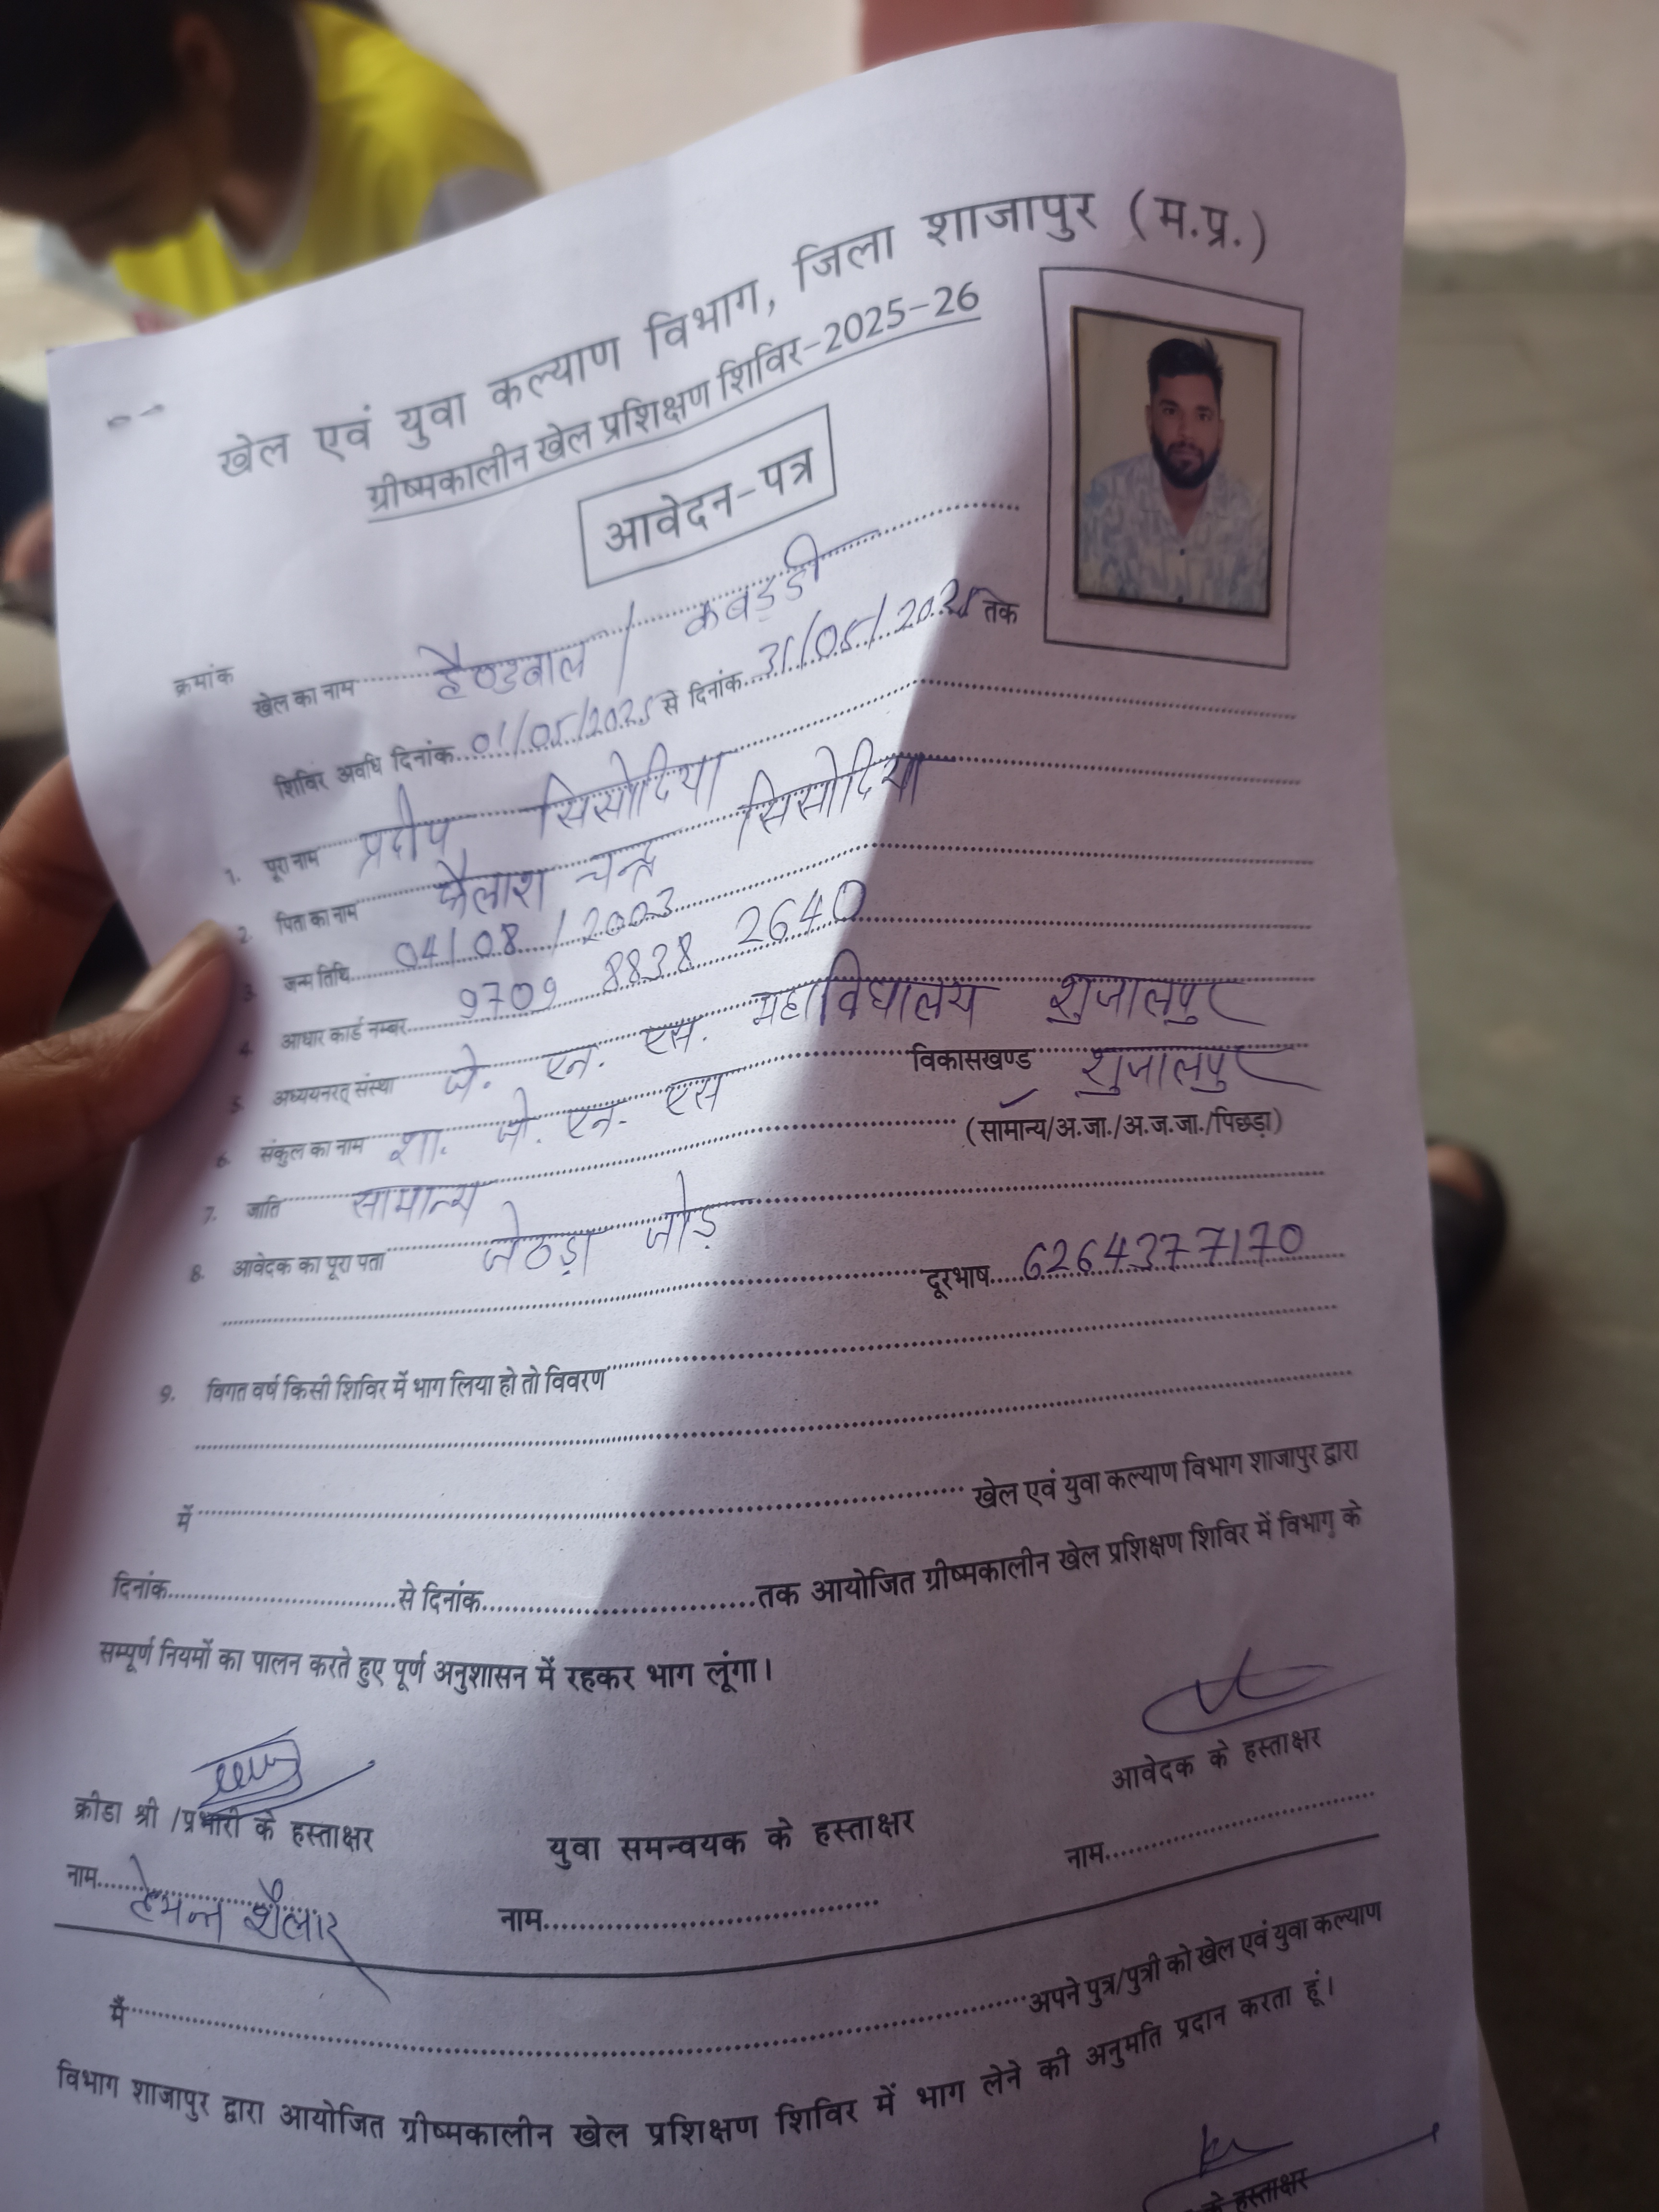 खेल एवं युवा कल्याण विभाग, जिला शाजापुर (म.प्र.)
ग्रीष्मकालीन खेल प्रशिक्षण शिविर-2025-26
आवेदन-पत्र
क्रमांक
खेल का नाम हैण्डबाल / कबड्डी
शिविर अवधि दिनांक 01/05/2025 से दिनांक 31/05/2025 तक
1. पूरा नाम प्रदीप सिसोदिया
2. पिता का नाम कैलाश चन्द्र सिसोदिया
3. जन्म तिथि 04/08/2003
4. आधार कार्ड नम्बर 9709 8838 2640
5. अध्ययनरत् संस्था जे. एन. एस. महाविद्यालय शुजालपुर
6. संकुल का नाम शा. जे. एन. एस विकासखण्ड शुजालपुर
7. जाति सामान्य (सामान्य/अ.जा./अ.ज.जा./पिछड़ा)
8. आवेदक का पूरा पता जेठड़ा जोड़
दूरभाष 6264377170
9. विगत वर्ष किसी शिविर में भाग लिया हो तो विवरण
में खेल एवं युवा कल्याण विभाग शाजापुर द्वारा
दिनांक से दिनांक तक आयोजित ग्रीष्मकालीन खेल प्रशिक्षण शिविर में विभाग के
सम्पूर्ण नियमों का पालन करते हुए पूर्ण अनुशासन में रहकर भाग लूंगा।
आवेदक के हस्ताक्षर
क्रीडा श्री /प्रभारी के हस्ताक्षर
युवा समन्वयक के हस्ताक्षर
नाम
नाम हेमन्त शैलार
नाम
मैं अपने पुत्र/पुत्री को खेल एवं युवा कल्याण
विभाग शाजापुर द्वारा आयोजित ग्रीष्मकालीन खेल प्रशिक्षण शिविर में भाग लेने की अनुमति प्रदान करता हूं।
के हस्ताक्षर